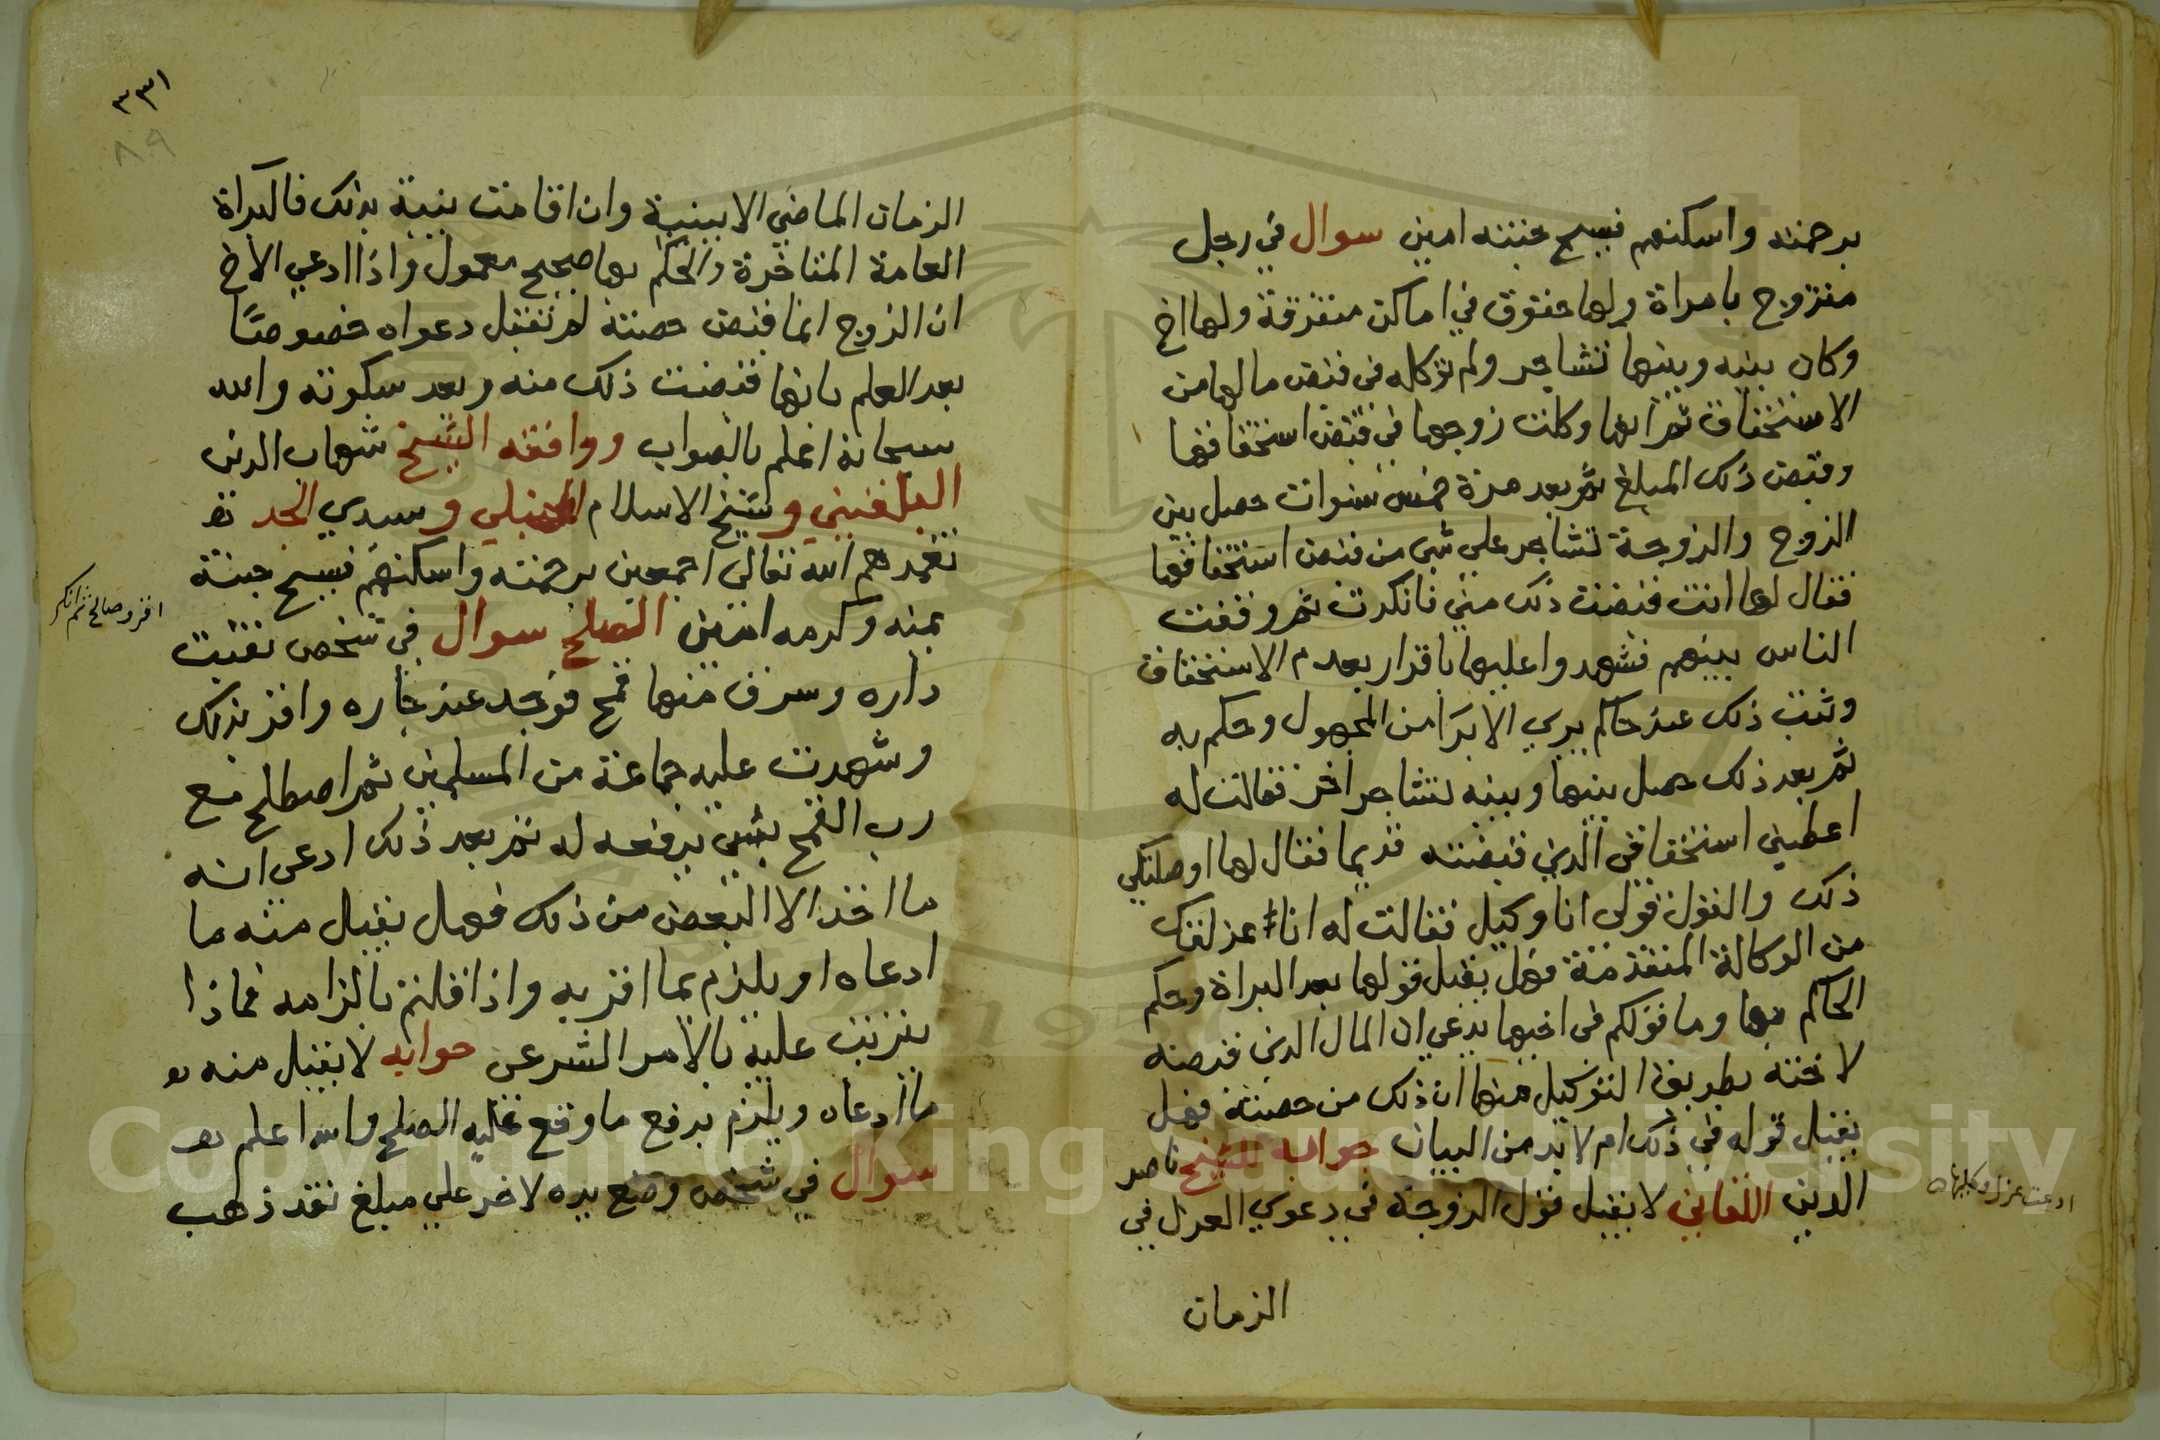 برحمته واسكنهم فسيح جنته امين سوال في رجل
متزوج بامراة ولها حقوق في اماكن متفرقة ولها اخ
وكان بينه وبينها تشاجر ولم توكله في قبض مالها من
الاستحقاق ثم انها وكلت زوجها في قبض استحقاقها
وقبض ذلك المبلغ ثم بعد مدة خمس سنوات حصل بين
الزوج والزوجة تشاجر على شي من قبض استحقاقها
فقال لها انت قبضت ذلك مني فانكرت ثم وقفت
الناس بينهم فشهدوا عليها باقرار بعدم الاستحقاق
وثبت ذلك عند حاكم يري الابرا من المجهول وحكم به
ثم بعد ذلك حصل بينها وبينه تشاجر اخر فقالت له
اعطيني استحقاقي الذي قبضته قديما فقال لها اوصلتكي
ذلك والقول قولي انا وكيل فقالت له انا عزلتك
من الوكالة المتقدمة فهل يقبل قولها بعد البراة وحكم
الحاكم بها وما قولكم في اخيها يدعي ان المال الذي قبضه
لاخته بطريق التوكيل منها ان ذلك من حصته فهل
يقبل قوله في ذلك ام لابد من البيان جوابه للشيخ ناصر
الدين اللقاني لا يقبل قول الزوجة في دعوي العزل في
الزمان
ادعت عزل وكيلها
٣٣١
٨٩
الزمان الماضي الا ببينة وان اقامت بينة بذلك فالبراة
العامة المتاخرة والحكم بها صحيح معمول واذا ادعي الاخ
ان الزوج انما قبض حصته لم تقبل دعواه خصوصا
بعد العلم بانها قبضت ذلك منه وبعد سكوته والله
سبحانه اعلم بالصواب ووافقه الشيخ شهاب الدين
البلقيني وشيخ الاسلام الحنبلي وسيدي الجد تغ
تغمدهم الله تعالى اجمعين برحمته واسكنهم فسيح جنته
بمنه وكرمه امين الصلح سوال في شخص نقبت
داره وسرق منها قمح فوجد عند جاره واقر بذلك
وشهدت عليه جماعة من المسلمين ثم اصطلح مع
رب القمح بشي يرفعه له ثم بعد ذلك ادعى انه
ما اخذ الا البعض من ذلك فهل يقبل منه ما
ادعاه او يلزم بما اقر به واذا قلتم بالزامه فماذا
يترتب عليه بالامر الشرعي جوابه لا يقبل منه
ما ادعاه ويلزم بدفع ما وقع عليه الصلح والله اعلم
سوال في شخص وضع يده لاخر علي مبلغ نقد ذهب
اقر وصالح ثم انكر
Copyright © King Saud University
1957